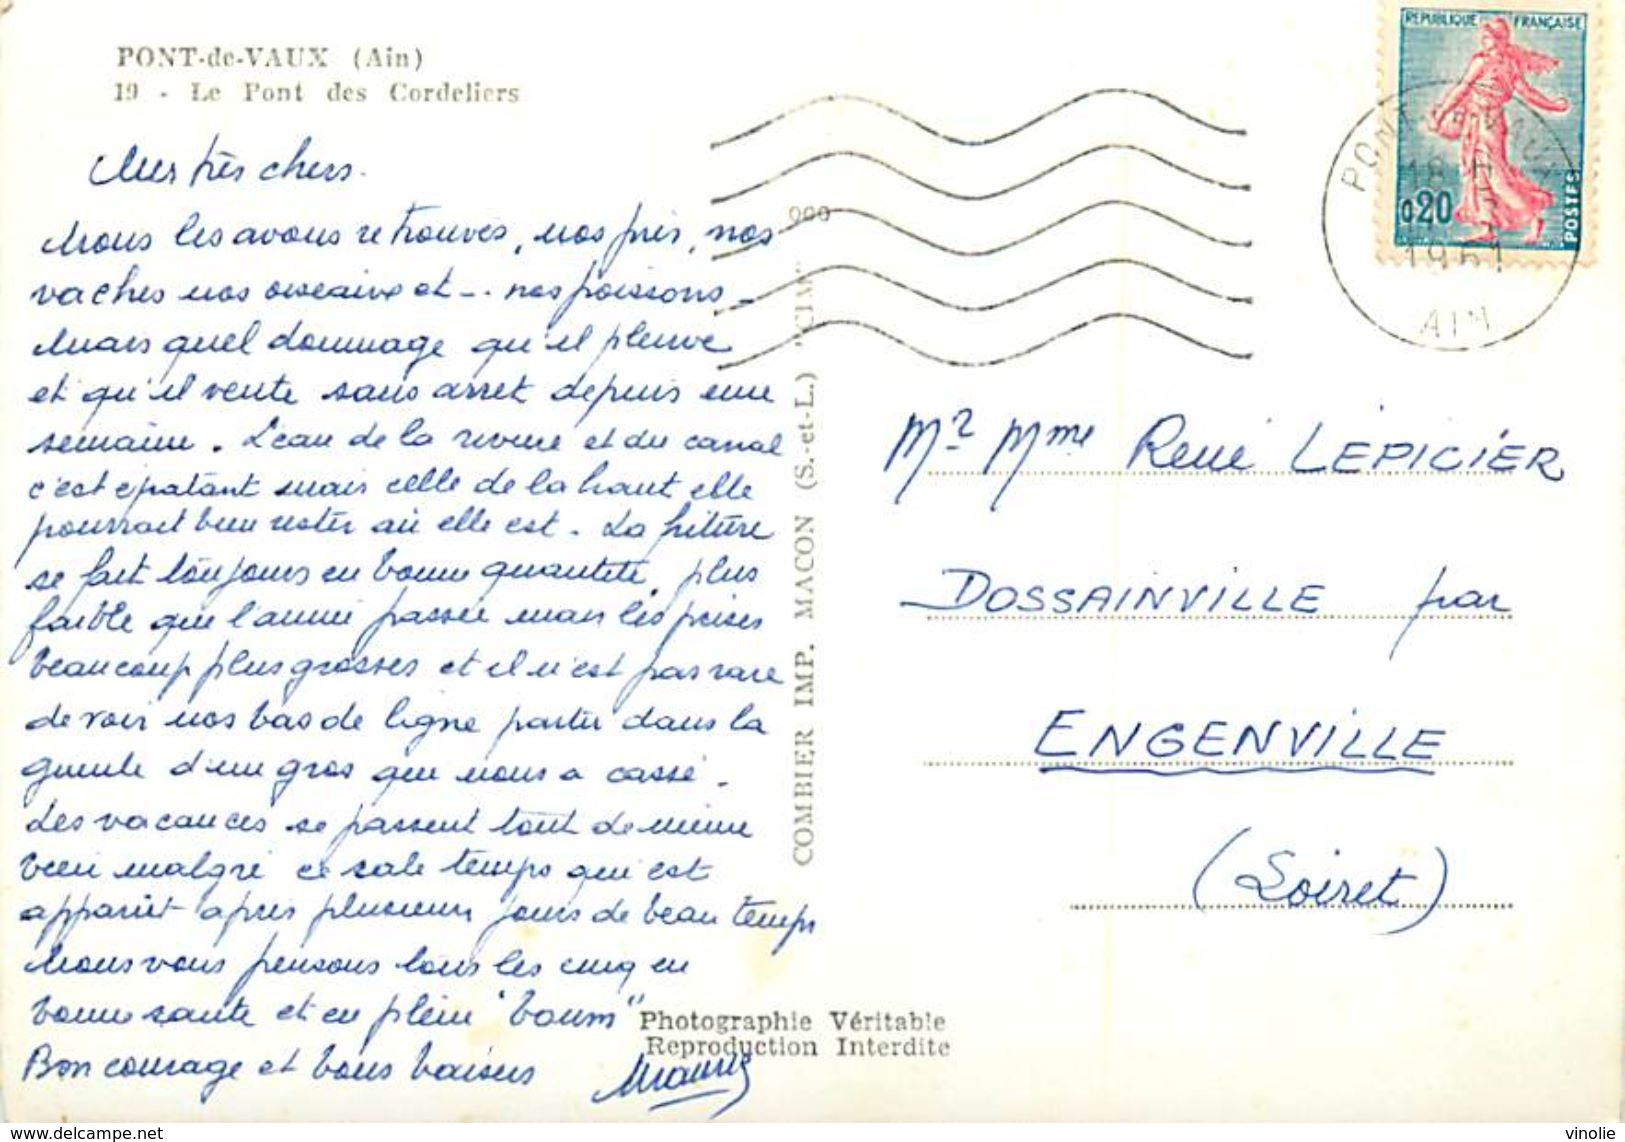 PONT-de-VAUX (Ain)
19 - Le Pont des Cordeliers
Mes très chers.
Nous les avons retrouvés, nos prés, nos
vaches nos oiseaux et -. nos poissons -
Mais quel dommage qu'il pleuve
et qu'il vente sans arret depuis une
semaine. L'eau de la riviere et du canal
c'est épatant mais celle de la haut elle
pourrait bien rester où elle est. La friture
se fait toujours en bonne quantité, plus
faible que l'année passée mais les prises
beaucoup plus grosses et il n'est pas rare
de voir nos bas de ligne partir dans la
gueule d'un gros qui nous a cassé.
Les vacances se passent tout de même
bien malgré ce sale temps qui est
apparut après plusieurs jours de beau temps
Nous vous pensons tous les cinq en
bonne santé et en plein "boum"
Bon courage et bons baisers
Maurice
COMBIER IMP. MACON (S.-et-L.) "CIM"
Photographie Véritable
Reproduction Interdite
REPUBLIQUE FRANÇAISE
0,20
POSTES
PONT-DE-VAUX
18 H
1961
AIN
000
Mr Mme René LÉPICIER
DOSSAINVILLE par
ENGENVILLE
(Loiret)
delcampe.net
vinolie